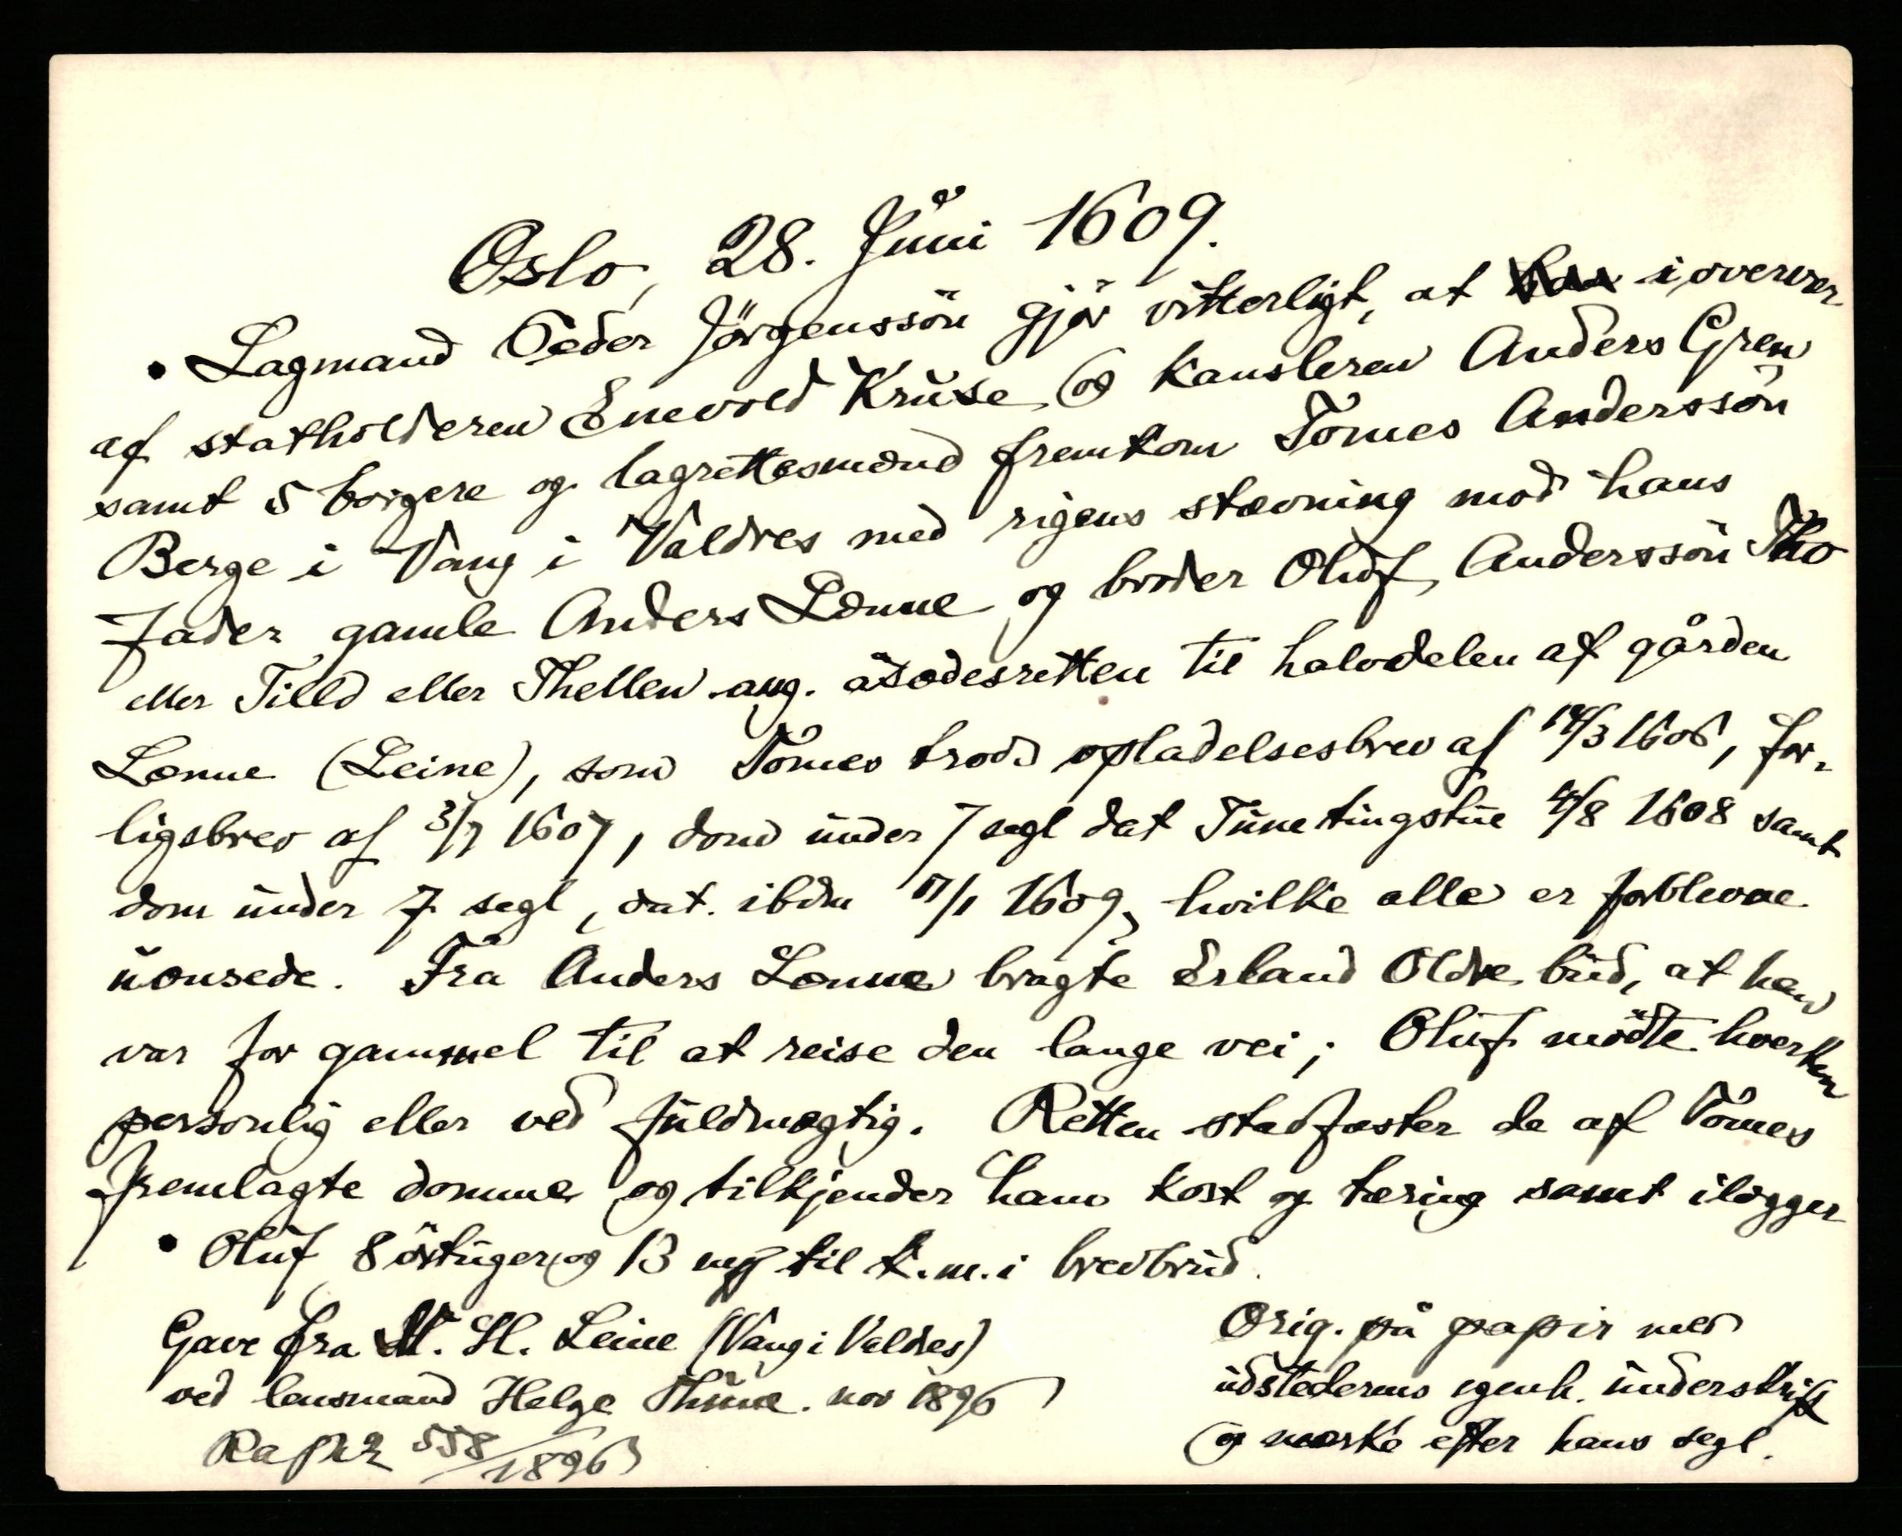 Oslo, 28. Juni 1609.
Lagmand Peder Jörgenssön gjör vitterligt, at i overvær
af statholderen Enevold Kruse og kansleren Anders Gren
samt 5 borgere og lagrettesmænd fremkom Tömes Anderssön
Berge i Vang i Valdres med rigens stævning mod hans
fader gamle Anders Lænne og broder Oluf Anderssön Tho
eller Tilld eller Thellen ang. åsædesretten til halvdelen af gården
Lænne (Leine), som Tömes trods opladelsesbrev af 14/3 1606, for-
ligsbrev af 3/7 1607, dom under 7 segl dat Tune tingstue 4/8 1608 samt
dom under 7 segl, dat. ibdm 17/1 1609, hvilke alle er forblevne
uænsede. Fra Anders Lænne bragte Erland Oldre bud, at han
var for gammel til at reise den lange vei; Oluf mödte hverken
personlig eller ved fuldmægtig. Retten stadfæster de af Tömes
fremlagte domme og tilkjender ham kost og tæring samt ilægger
Oluf 8 örtuger og 13 mk til k.m. i brevbrud.
Gave fra M. H. Leine (Vang i Valdres)
ved lensmand Helge Thune. nov 1896
Ra pk 2 558/1896
Orig. på papir med
udstederens egenh. underskrift
og mærke efter hans segl.